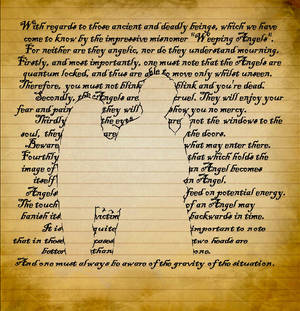 With regards to those ancient and deadly beings, which we have
come to know by the impressive misnomer "Weeping Angels".
For neither are they angelic, nor do they understand mourning.
Firstly, and most importantly, one must note that the Angels are
quantum locked, and thus are able to move only whilst unseen.
Therefore, you must not blink blink and you're dead.
Secondly, the Angels are cruel. They will enjoy your
fear and pain they will show you no mercy.
Thirdly the eyes are not the windows to the
soul, they are the doors.
Beware what may enter there.
Fourthly that which holds the
image of an Angel becomes
itself an Angel.
Angels feed on potential energy.
The touch of an Angel may
banish its victim backwards in time.
It is quite important to note
that in those cases two heads are
better than one.
And one must always be aware of the gravity of the situation.